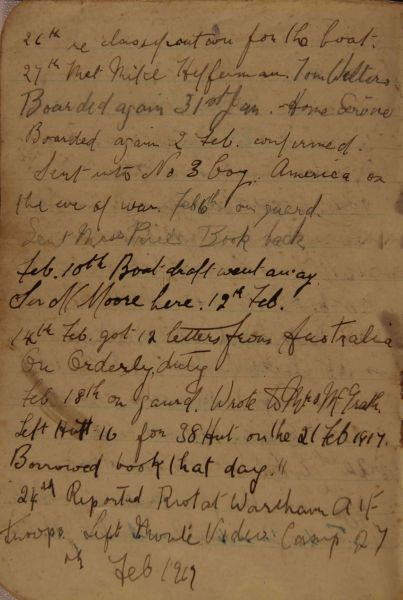 26th re classification for the boat.
27th Met Mike Hefferman. Tom Welters
Boarded again 31st Jan. Home Service
Boarded again 2 Feb. confirmed.
Sent into No 3 Coy. America on
the eve of war. Feb 6th on guard.
Sent Miss Book back
Feb. 10th Boat draft went away
Ser N. Moore here. 12th Feb.
14th Feb. got 12 letters from Australia
On Orderly duty
Feb 18th on gaurd. Wrote to Mrs McGrath.
Left Hutt 16 for 38 Hut. on the 21 Feb 1917.
Borrowed book that day. "
24th Reported Riot at Warsham A I F
troops. Left Videa Camp 27
th Feb 1917